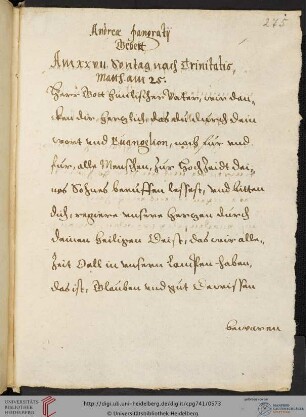 275
Andreæ Pangratij
Gebett
Am XXVII. Sontag nach Trinitatis,
Matth. am 25.
Herr Gott himlischer Vater, wir dan-
cken dir hertzlich, das du durch dein
wort und Euangelion, nach für und
für, alle Menschen, zur Hochzeidt dei-
nes Sohnes beruffen lessest, und bitten
dich, regiere unsere hertzen durch
deinen heiligen Geist, das wir alle-
zeit Oell in unsern Lampen haben,
das ist, Glauben und gut Gewissen
bewaren
UNIVERSITÄTS-
BIBLIOTHEK
HEIDELBERG
http://digi.ub.uni-heidelberg.de/diglit/cpg741/0573
© Universitätsbibliothek Heidelberg